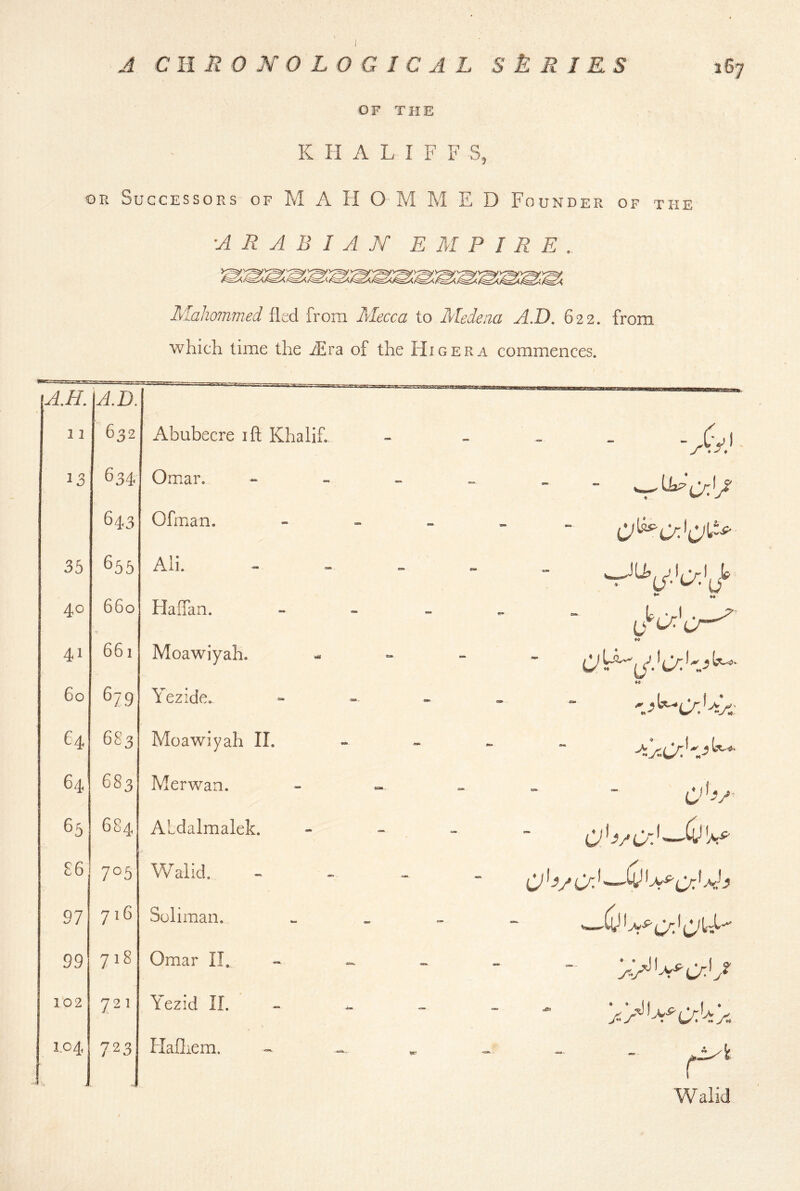 A CHRONOLOGICAL SERIES 167
OF THE
KHALIFFS,
OR SUCCESSORS OF MAHOMMED FOUNDER OF THE
ARABIAN EMPIRE.
Mahommed fled from Mecca to Medena A.D. 622. from
which time the Æra of the HIGERA commences.
A.H. A.D.
11 632 Abubecre 1ſt Khalif. - - - - ابوبكر
13 634 Omar. - - - - - - عمر ابن خطاب
643 Oſman. - - - - - عثمان ابن عفان
35 655 Ali. - - - - - علي ابن ابي طالب
40 660 Haſſan. - - - - - حسن ابن علي
41 661 Moawiyah. - - - - معاويه ابن ابي سفيان
60 679 Yezide. - - - - - يزيد ابن معاويه
64 683 Moawiyah II. - - - - معاويه ابن يزيد
64 683 Merwan. - - - - - مروان
65 684 Abdalmalek. - - - - عبدالملك ابن مروان
86 705 Walid. - - - - وليد ابن عبدالملك ابن مروان
97 716 Soliman. - - - - سليمان ابن عبدالملك
99 718 Omar II. - - - - - عمر ابن عبدالعزيز
102 721 Yezid II. - - - - - يزيد ابن عبدالعزيز
104 723 Haſhem. - - - - - - هاشم
Walid